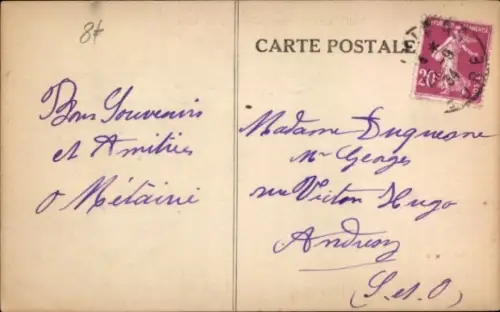 8f
CARTE POSTALE
20c
Bons Souvenirs
et Amitiés
Métairie
Madame Duquesne
Mr Georges
rue Victor Hugo
Andresy
(S. et O)